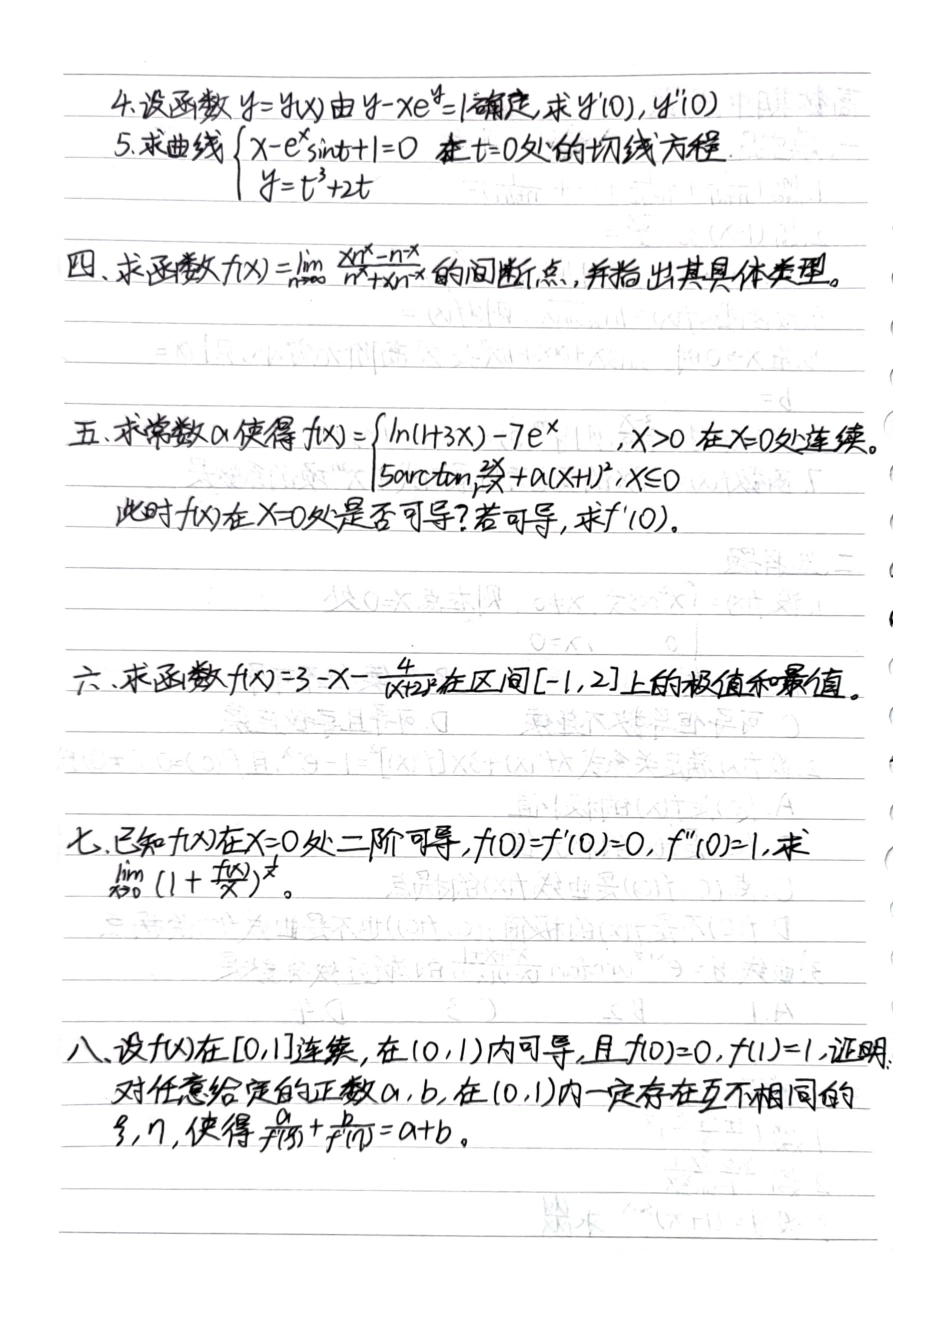 4.设函数y=y(x)由y-xe^y=1确定,求y'(0),y''(0)
5.求曲线{x-e^x sint+1=0 在t=0处的切线方程.
y=t³+2t
四、求函数f(x)=lim n→∞ (xn^x-n^-x)/(n^x+xn^-x)的间断点,并指出其具体类型。
五、求常数a使得f(x)={ln(1+3x)-7e^x ,x>0 在x=0处连续。
5arctan 2x/(1-x)+a(x+1)²,x≤0
此时f(x)在x=0处是否可导?若可导,求f'(0)。
六、求函数f(x)=3-x-4/(x+2)²在区间[-1,2]上的极值和最值。
七、已知f(x)在x=0处二阶可导,f(0)=f'(0)=0,f''(0)=1,求
lim x→0 (1+f(x)/x)^(1/x)。
八、设f(x)在[0,1]连续,在(0,1)内可导,且f(0)=0,f(1)=1,证明:
对任意给定的正数a,b,在(0,1)内一定存在互不相同的
ξ,η,使得a/f'(ξ)+b/f'(η)=a+b。